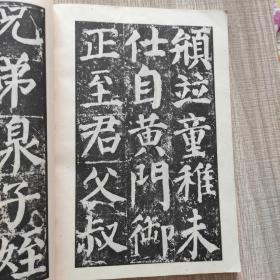 並童稚未
仕自黃門御
正至君父叔
兄弟臮子姪